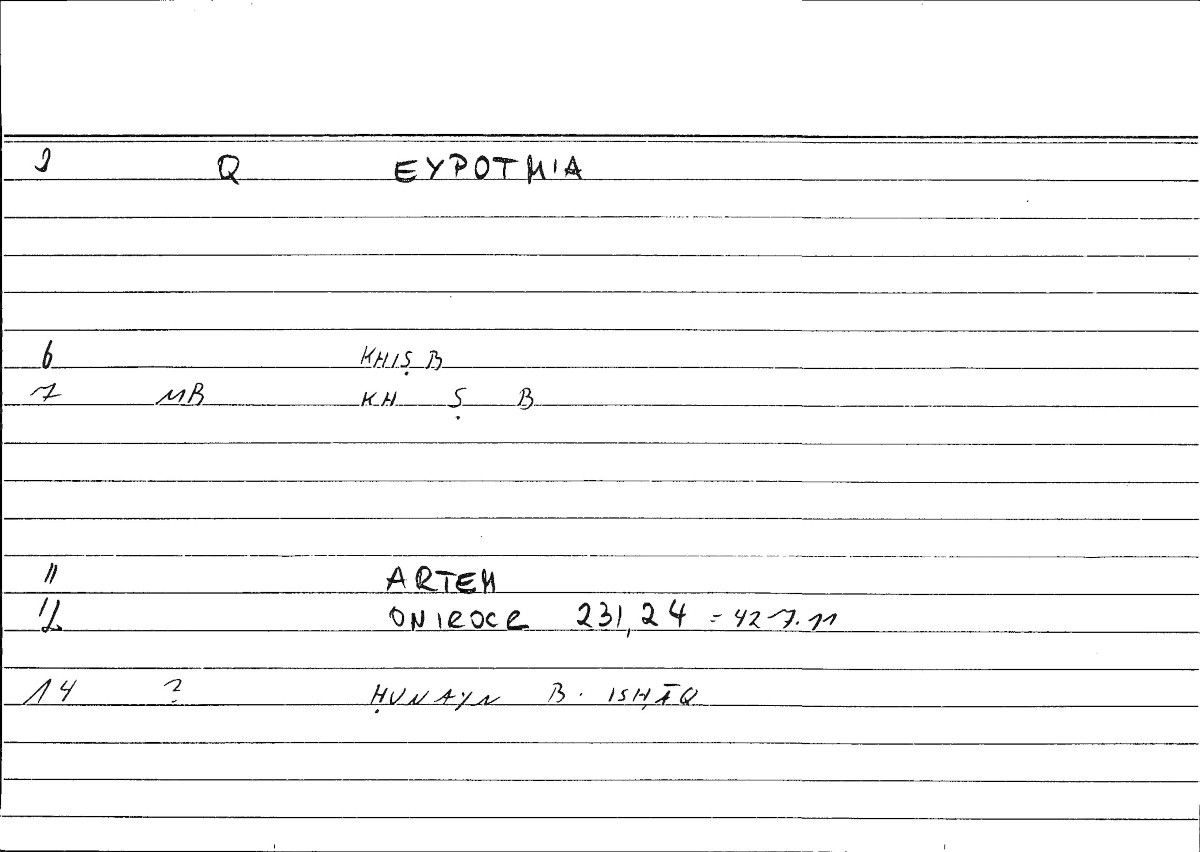 Q EYPOTMIA
6 KHIṢB
7 MB KH Ṣ B
11 ARTEM
12 ONIROCR 231,24 = 427.11
14 ? ḤUNAYN B. ISḤĀQ